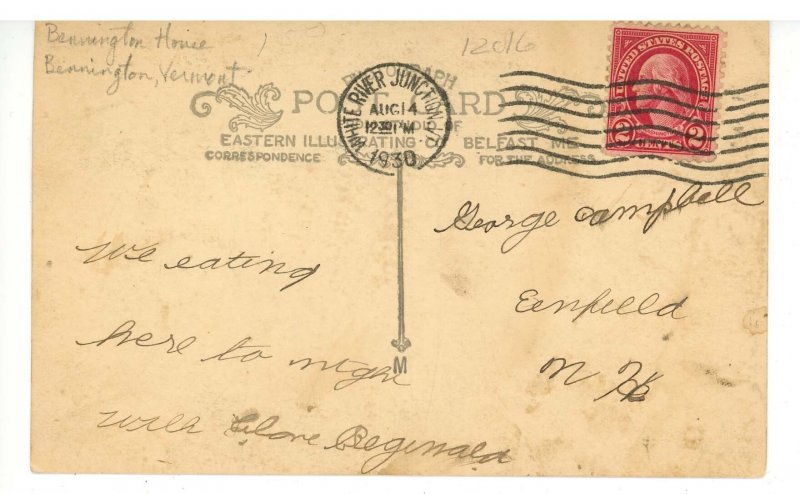 Bennington House
Bennington, Vermont
12016
UNITED STATES POSTAGE
2 CENTS 2
WHITE RIVER JUNCTION, VT.
AUG 14
12 PM
1930
PHOTOGRAPH
POST CARD
EASTERN ILLUSTRATING CO. BELFAST ME.
CORRESPONDENCE
FOR THE ADDRESS
George Campbell
Eenfield
N H
We eating
here to night
will
Reginald
M